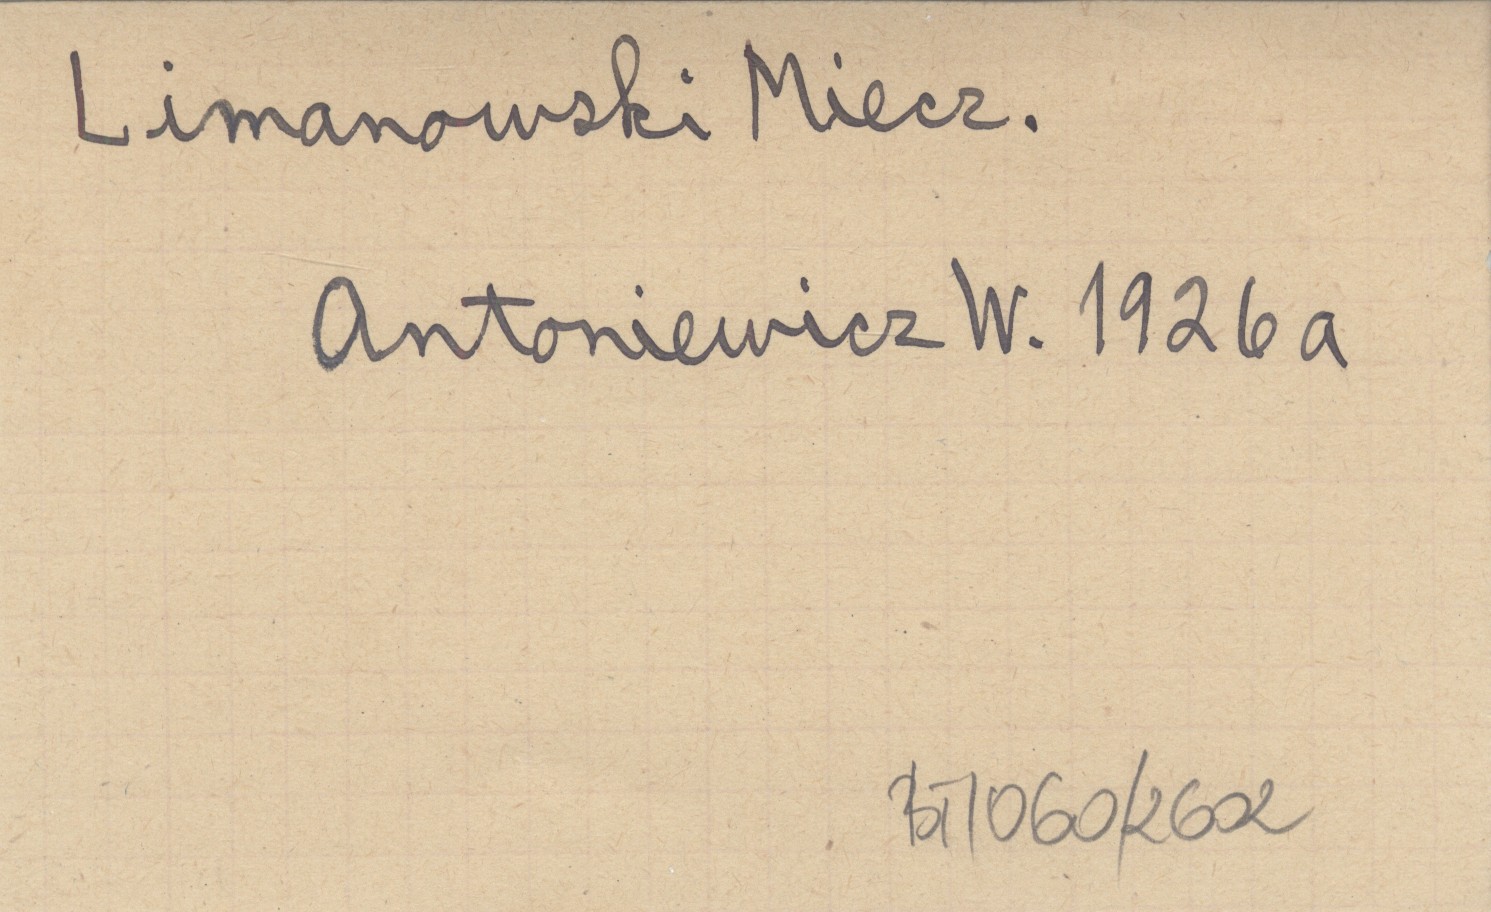 Limanowski Miecz.
Antoniewicz W. 1926a
BT/060/2602